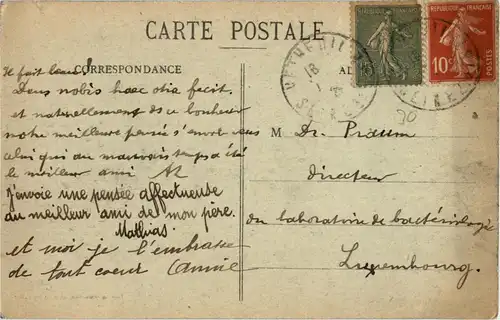 CARTE POSTALE
CORRESPONDANCE
Il fait beau!
Deus nobis haec otia fecit.
et naturellement de ce bonheur
notre meilleure pensée s'envole vers
celui qui au mauvais temps a été
le meilleur ami
J'envoie une pensée affectueuse
au meilleur ami de mon père.
Mathias.
et moi je l'embrasse
de tout coeur Annie
M Dr. Praum
Directeur
du laboratoire de bactériologie
Luxembourg.
10c
POSTES
90